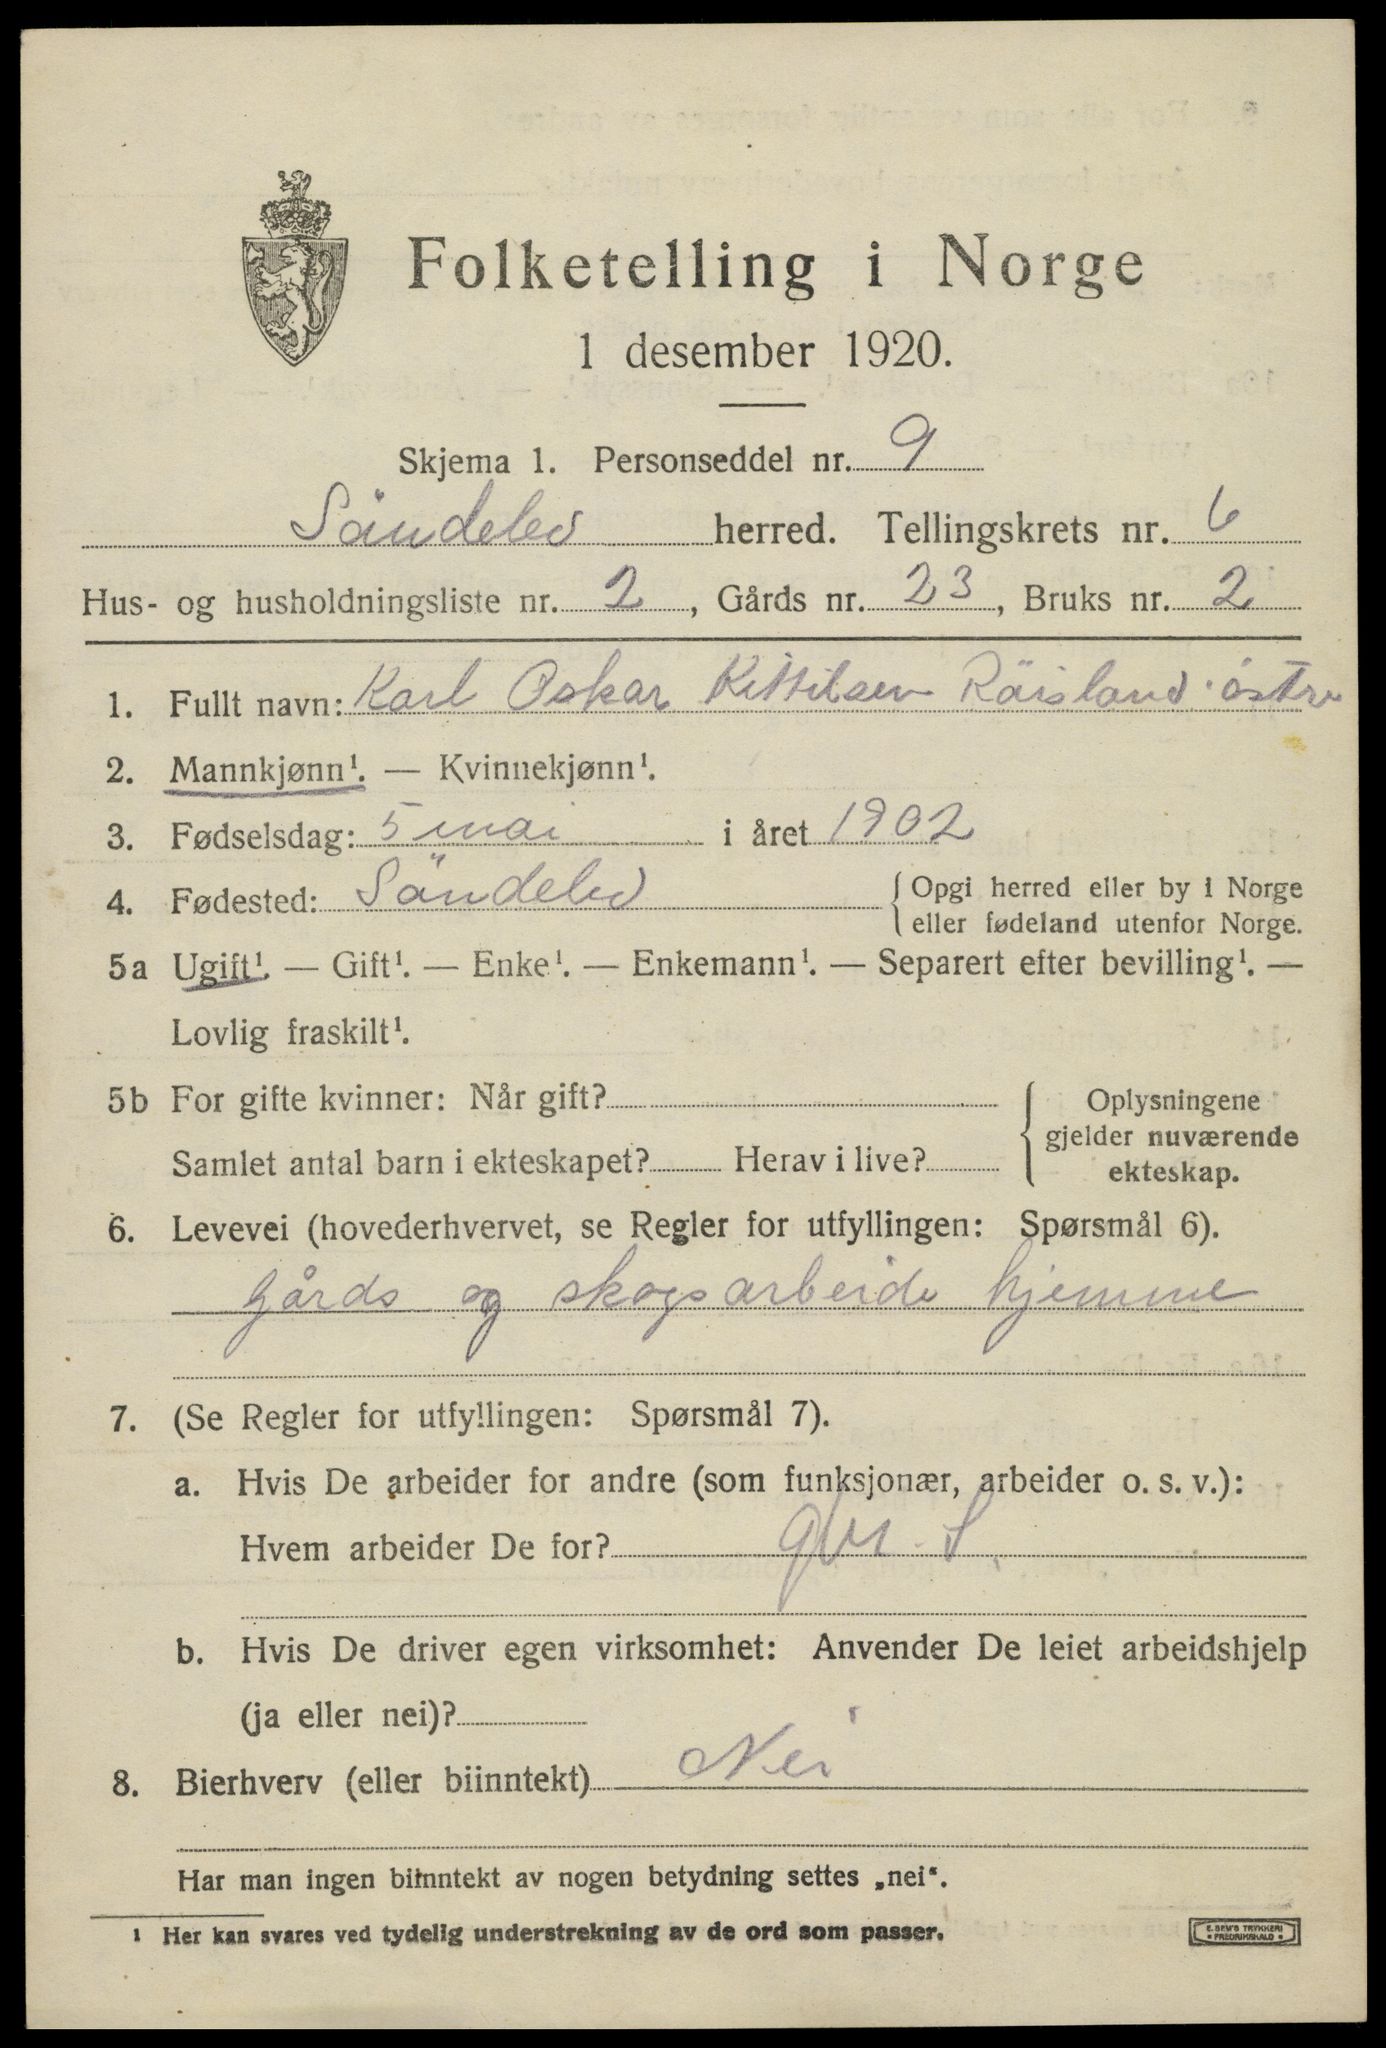 Folketelling i Norge
1 desember 1920.
Skjema 1. Personseddel nr. 9
Söndeled herred. Tellingskrets nr. 6
Hus- og husholdningsliste nr. 2, Gårds nr. 23, Bruks nr. 2
1. Fullt navn: Karl Oskar Kittilsen Röisland östre
2. Mannkjønn¹. — Kvinnekjønn¹.
3. Fødselsdag: 5 mai i året 1902
4. Fødested: Söndeled { Opgi herred eller by i Norge
eller fødeland utenfor Norge.
5a Ugift¹. — Gift¹. — Enke¹. — Enkemann¹. — Separert efter bevilling¹. —
Lovlig fraskilt¹.
5b For gifte kvinner: Når gift?
Samlet antal barn i ekteskapet? Herav i live?
{ Oplysningene
gjelder nuværende
ekteskap.
6. Levevei (hovederhvervet, se Regler for utfyllingen: Spørsmål 6).
Gårds og skogsarbeide hjemme
7. (Se Regler for utfyllingen: Spørsmål 7).
a. Hvis De arbeider for andre (som funksjonær, arbeider o. s. v.):
Hvem arbeider De for?
b. Hvis De driver egen virksomhet: Anvender De leiet arbeidshjelp
(ja eller nei)?
8. Bierhverv (eller biinntekt) Nei
Har man ingen biinntekt av nogen betydning settes „nei“.
¹ Her kan svares ved tydelig understrekning av de ord som passer.
E. SEM'S TRYKKERI
FREDRIKSHALD